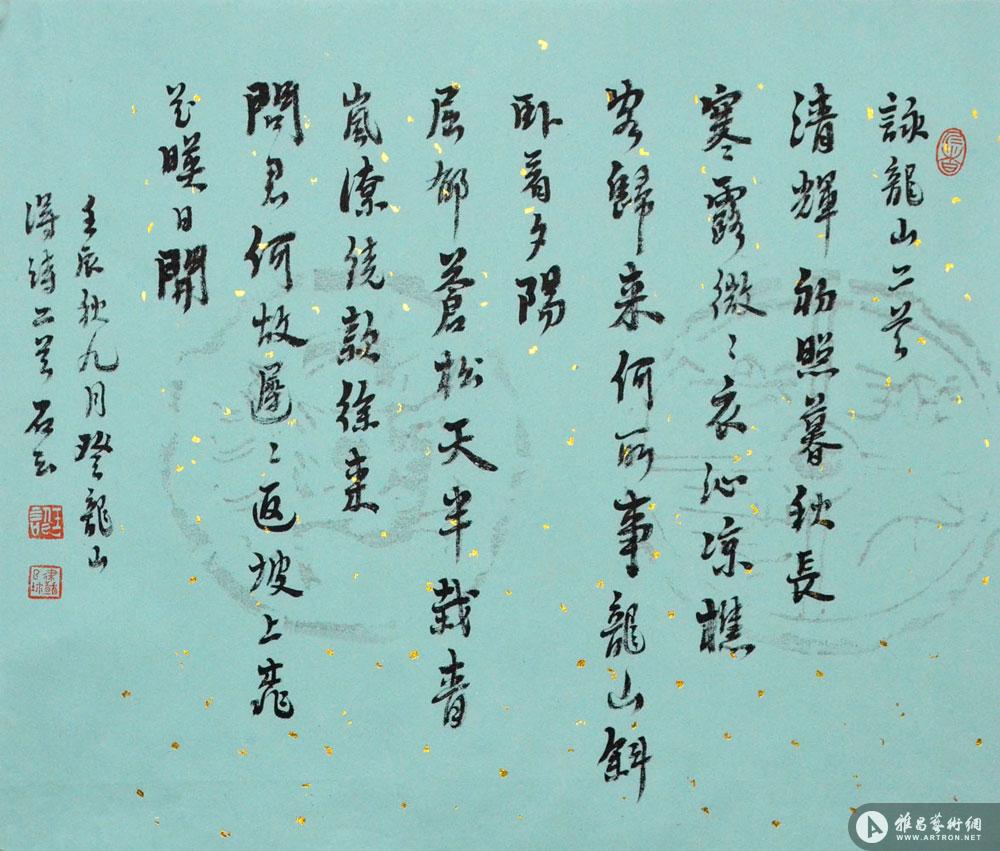 詠龍山二首
清輝初照暮秋長
寒〻露微〻衣沁凉樵
客歸来何所事龍山斜
卧看夕陽
屈郁蒼松天半栽青
嵐潦繞款徐来
問君何故遲〻返坡上
花暎日開
壬辰秋九月登龍山
得詩二首石
雅昌藝術網
WWW.ARTRON.NET